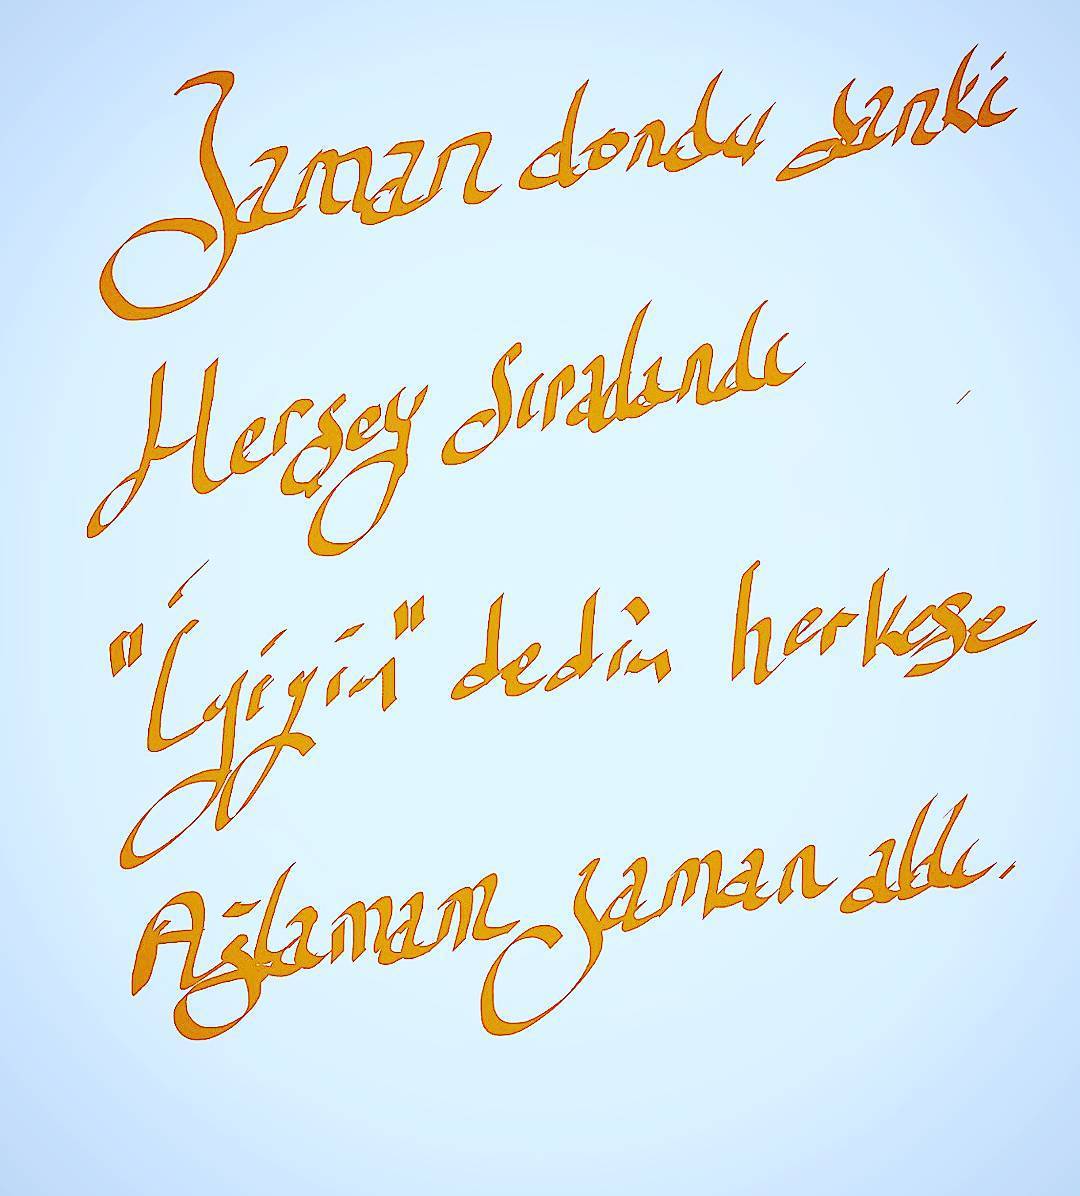 Zaman dondu sanki
Herşey sıradandı
"İyiyin" dedin herkese
Ağlamam zaman aldı.